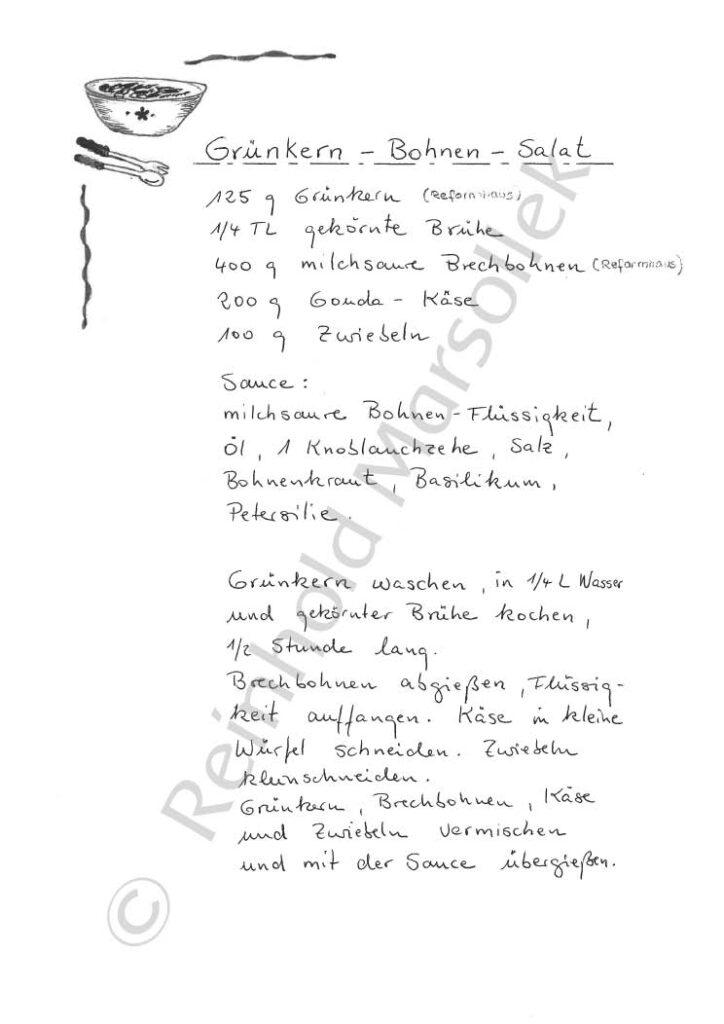 Grünkern - Bohnen - Salat
125 g Grünkern (Reformhaus)
1/4 TL gekörnte Brühe
400 g milchsaure Brechbohnen (Reformhaus)
200 g Gouda - Käse
100 g Zwiebeln
Sauce:
milchsaure Bohnen-Flüssigkeit,
Öl, 1 Knoblauchzehe, Salz,
Bohnenkraut, Basilikum,
Petersilie.
Grünkern waschen, in 1/4 L Wasser
und gekörnter Brühe kochen,
1/2 Stunde lang.
Brechbohnen abgießen, Flüssig-
keit auffangen. Käse in kleine
Würfel schneiden. Zwiebeln
kleinschneiden.
Grünkern, Brechbohnen, Käse
und Zwiebeln vermischen
und mit der Sauce übergießen.
© Reinhold Marsollek